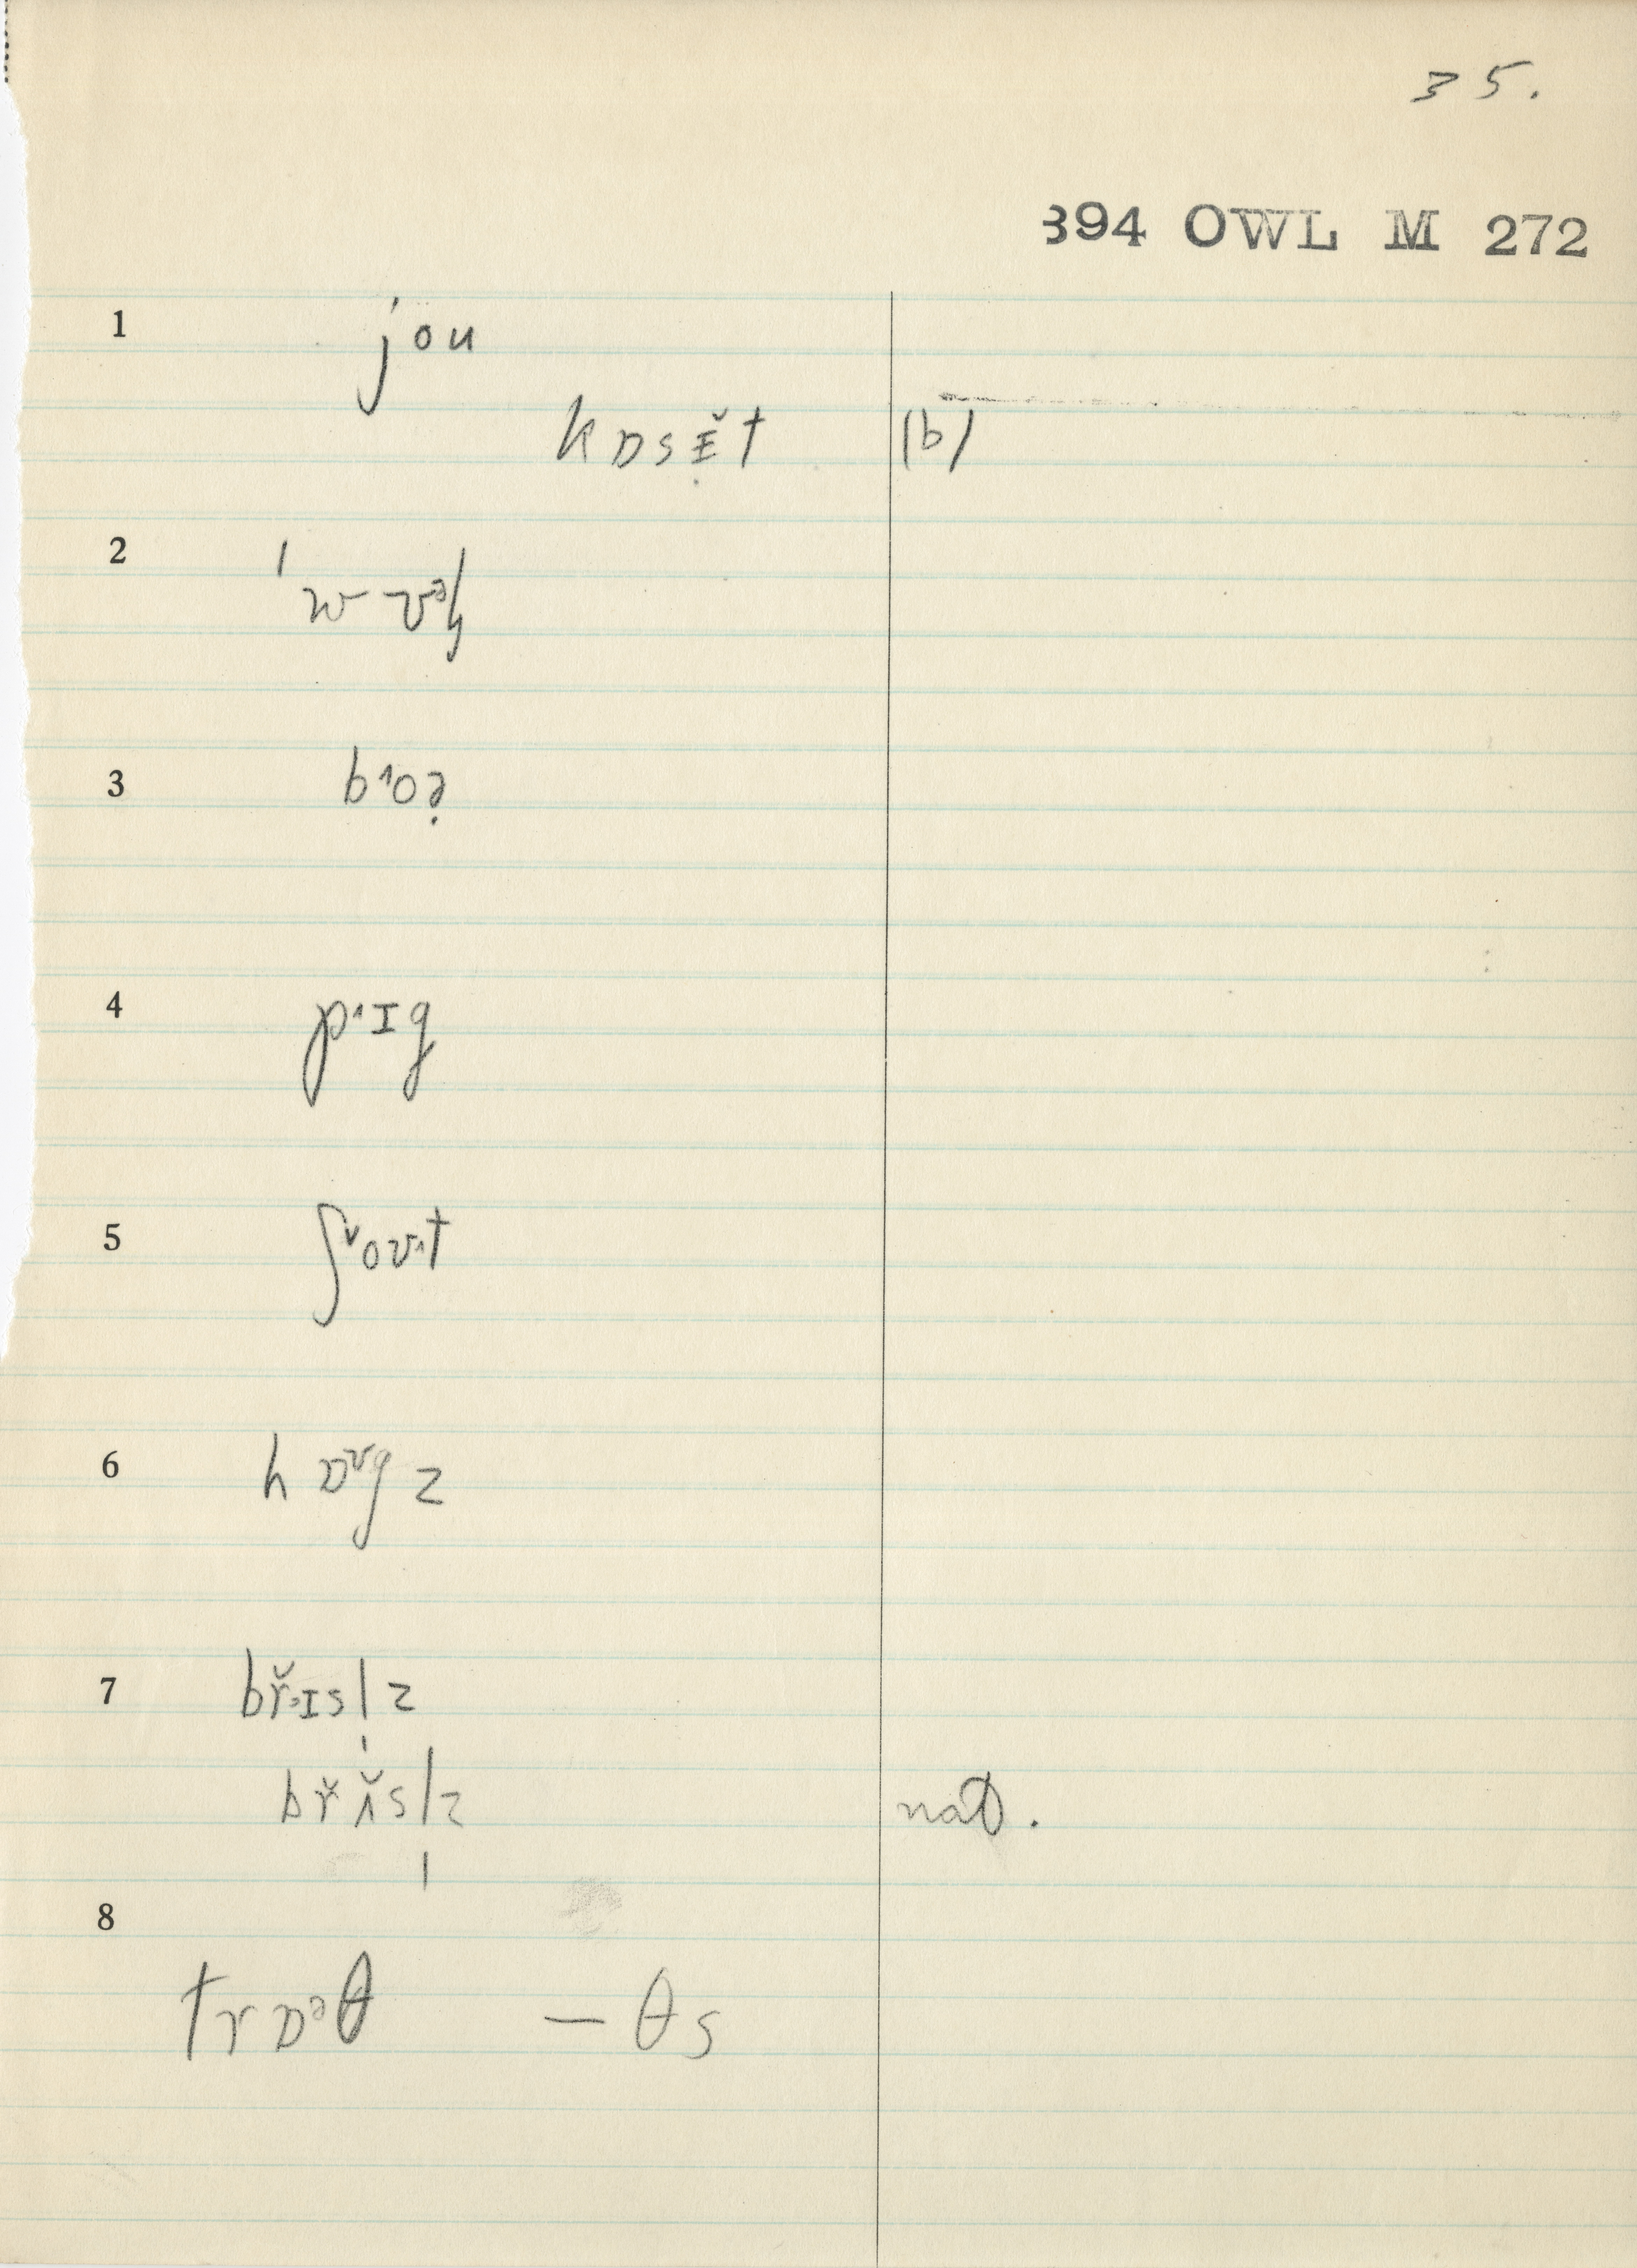 35.
394 OWL M 272
1 jou
kɒsɪ̣̆t (b)
2
3 b˄oə̣
4 p˄·ɪg
5 ʃ˅oʊ˄t
6 hɒᶷgz
7 br̆ɪsl̩z
br̆ʌ̆sl̩z nat.
8 trɒᵊθ – θs